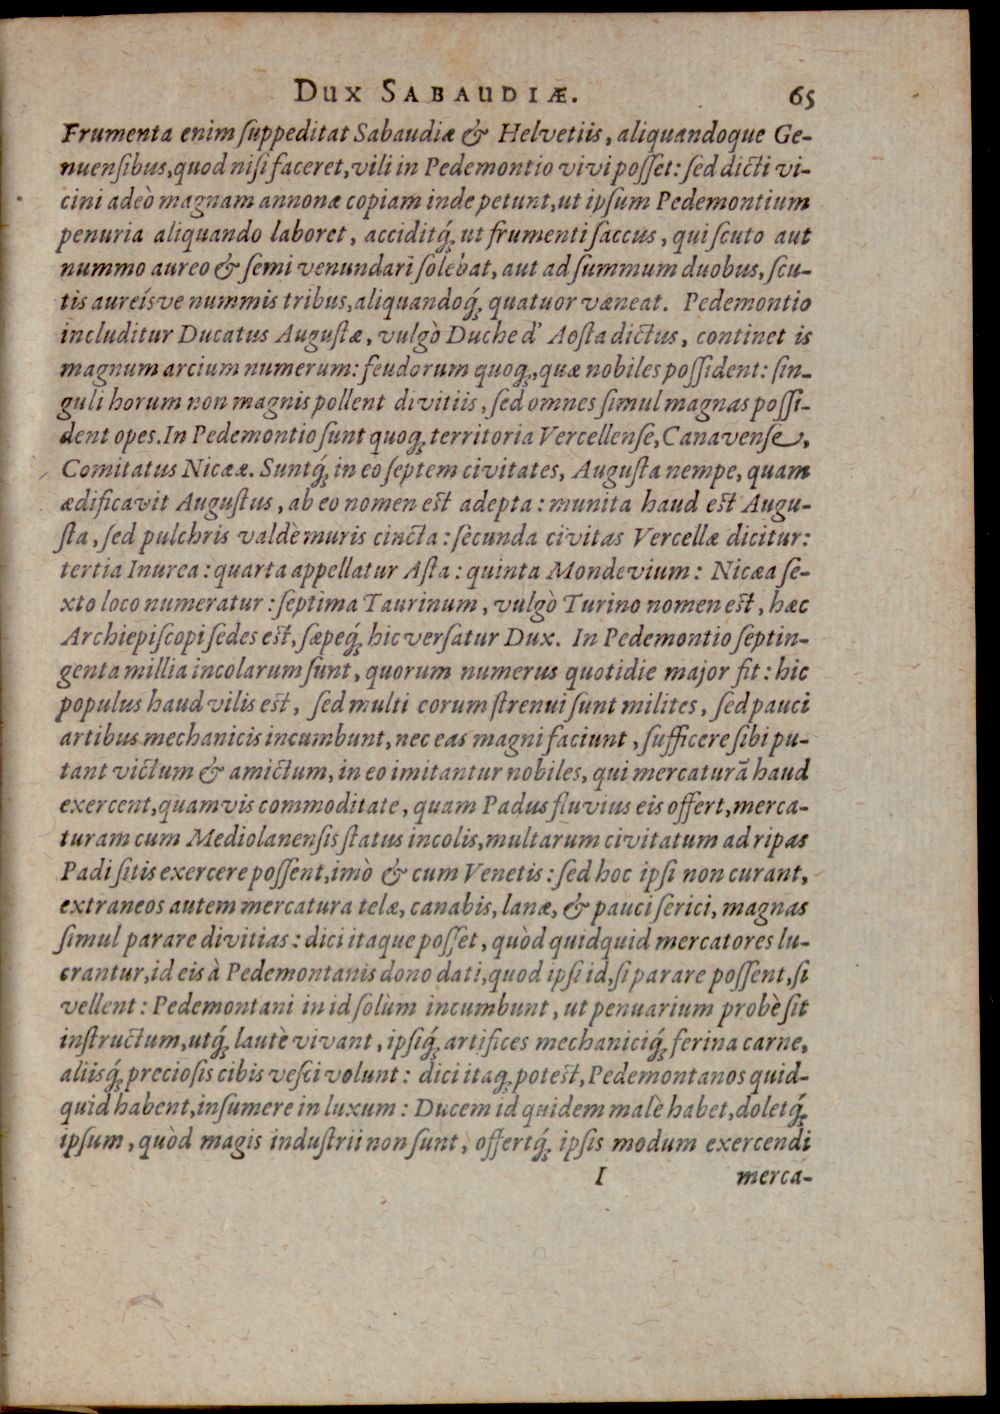 DUX SABAUDIÆ. 65
Frumenta enim ſuppeditat Sabaudiæ & Helvetiis, aliquandoque Ge-
nuenſibus, quod niſi faceret, vili in Pedemontio vivi poſſet: ſed dicti vi-
cini adeò magnam annonæ copiam inde petunt, ut ipſum Pedemontium
penuria aliquando laboret, acciditq́; ut frumenti ſaccus, qui ſcuto aut
nummo aureo & ſemi venundari ſolebat, aut ad ſummum duobus, ſcu-
tis aureísve nummis tribus, aliquandoq́; quatuor væneat. Pedemontio
includitur Ducatus Auguſtæ, vulgò Duche d' Aoſta dictus, continet is
magnum arcium numerum: feudorum quoq;, quæ nobiles poſſident: ſin-
guli horum non magnis pollent divitiis, ſed omnes ſimul magnas poſſi-
dent opes. In Pedemontio ſunt quoq; territoria Vercellenſe, Canavenſe,
Comitatus Nicææ. Suntq́; in eo ſeptem civitates, Auguſta nempe, quam
ædificavit Auguſtus, ab eo nomen eſt adepta: munita haud eſt Augu-
ſta, ſed pulchris valdè muris cincta: ſecunda civitas Vercellæ dicitur:
tertia Inurea: quarta appellatur Aſta: quinta Mondevium: Nicæa ſe-
xto loco numeratur: ſeptima Taurinum, vulgò Turino nomen eſt, hæc
Archiepiſcopi ſedes eſt, ſæpeq́; hic verſatur Dux. In Pedemontio ſeptin-
genta millia incolarum ſunt, quorum numerus quotidie major fit: hic
populus haud vilis eſt, ſed multi eorum ſtrenui ſunt milites, ſed pauci
artibus mechanicis incumbunt, nec eas magni faciunt, ſufficere ſibi pu-
tant victum & amictum, in eo imitantur nobiles, qui mercaturā haud
exercent, quamvis commoditate, quam Padus fluvius eis offert, merca-
turam cum Mediolanenſis ſtatus incolis, multarum civitatum ad ripas
Padi ſitis exercere poſſent, imò & cum Venetis: ſed hoc ipſi non curant,
extraneos autem mercatura telæ, canabis, lanæ, & pauci ſerici, magnas
ſimul parare divitias: dici itaque poſſet, quòd quidquid mercatores lu-
crantur, id eis à Pedemontanis dono dati, quod ipſi id, ſi parare poſſent, ſi
vellent: Pedemontani in id ſolùm incumbunt, ut penuarium probè ſit
inſtructum, utq́; lautè vivant, ipſiq́; artifices mechaniciq́; ferina carne,
aliisq́; precioſis cibis veſci volunt: dici itaq; poteſt, Pedemontanos quid-
quid habent, inſumere in luxum: Ducem id quidem malè habet, doletq́;
ipſum, quòd magis induſtrii non ſunt, offertq́; ipſis modum exercendi
I merca-